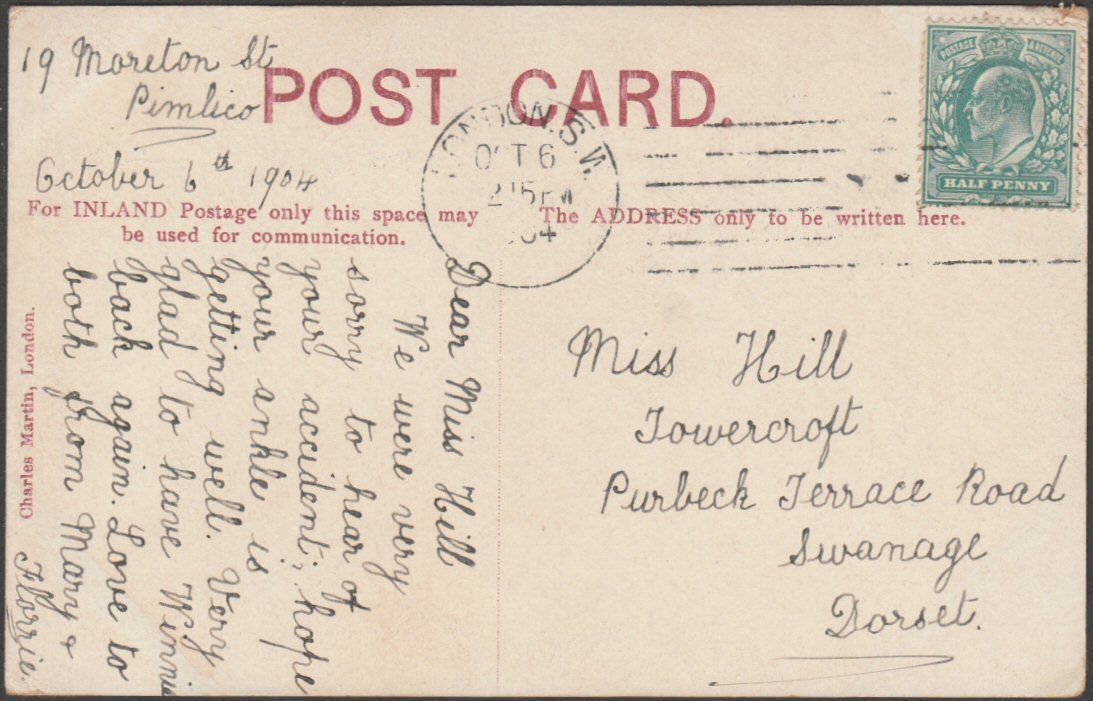 19 Moreton St
Pimlico
POST CARD.
October 6th 1904
LONDON.S.W.
OCT 6
2 15 PM
04
POSTAGE & REVENUE
HALF PENNY
For INLAND Postage only this space may
be used for communication.
The ADDRESS only to be written here.
Dear Miss Hill
We were very
sorry to hear of
your accident; hope
your ankle is
getting well. Very
glad to have Winnie
back again. Love to
both from Mary &
Florrie.
Miss Hill
Towercroft
Purbeck Terrace Road
Swanage
Dorset.
Charles Martin, London.